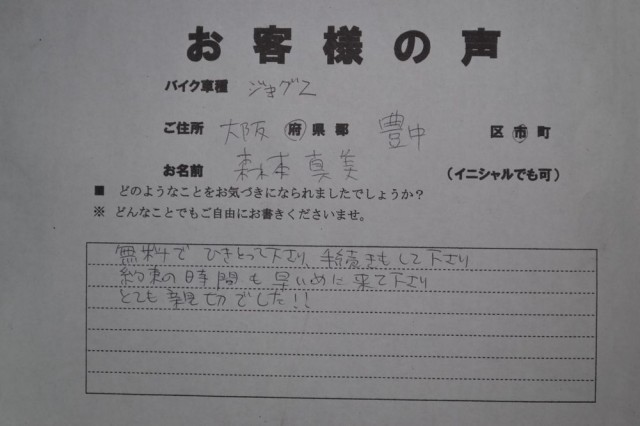 お客様の声
バイク車種 ジョグZ
ご住所 大阪 府県都 豊中 区市町
お名前 森本 真美 (イニシャルでも可)
■ どのようなことをお気づきになられましたでしょうか?
※ どんなことでもご自由にお書きくださいませ。
無料で ひきとって下さり、手続きもして下さり
約束の時間も早いめに来て下さり
とても親切でした!!